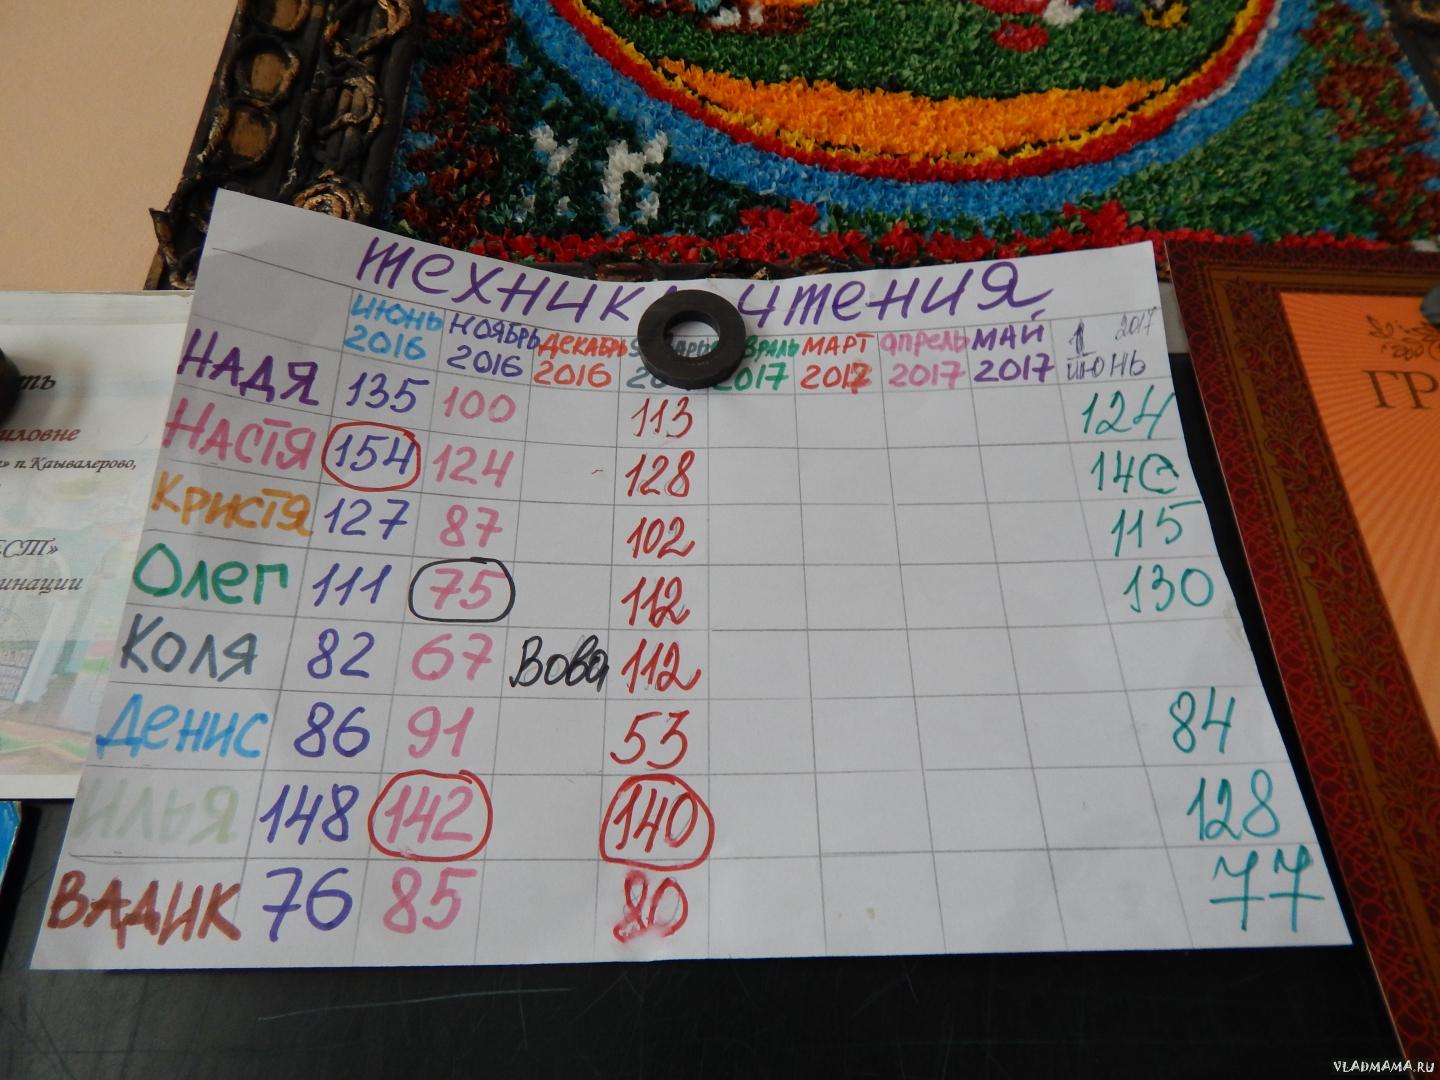 техник чтения
июнь 2016 ноябрь 2016 декабрь 2016 2017 март 2017 апрель 2017 май 2017 1 июнь 2017
Надя 135 100 113 124
Настя 154 124 128 140
Кристя 127 87 102 115
Олег 111 75 112 130
Коля 82 67 Вова 112
Денис 86 91 53 84
Илья 148 142 140 128
Вадик 76 85 80 77
п. Каывалерово,
VLADMAMA.RU